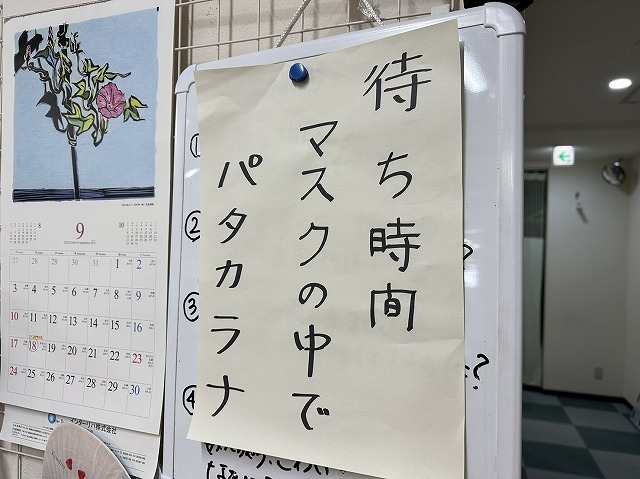 待ち時間
マスクの中で
パタカラナ
①
②
③
④
?
8
9
10
27 28 29 30 31 1 2
3 4 5 6 7 8 9
10 11 12 13 14 15 16
17 18 19 20 21 22 23
24 25 26 27 28 29 30
インターリハ株式会社